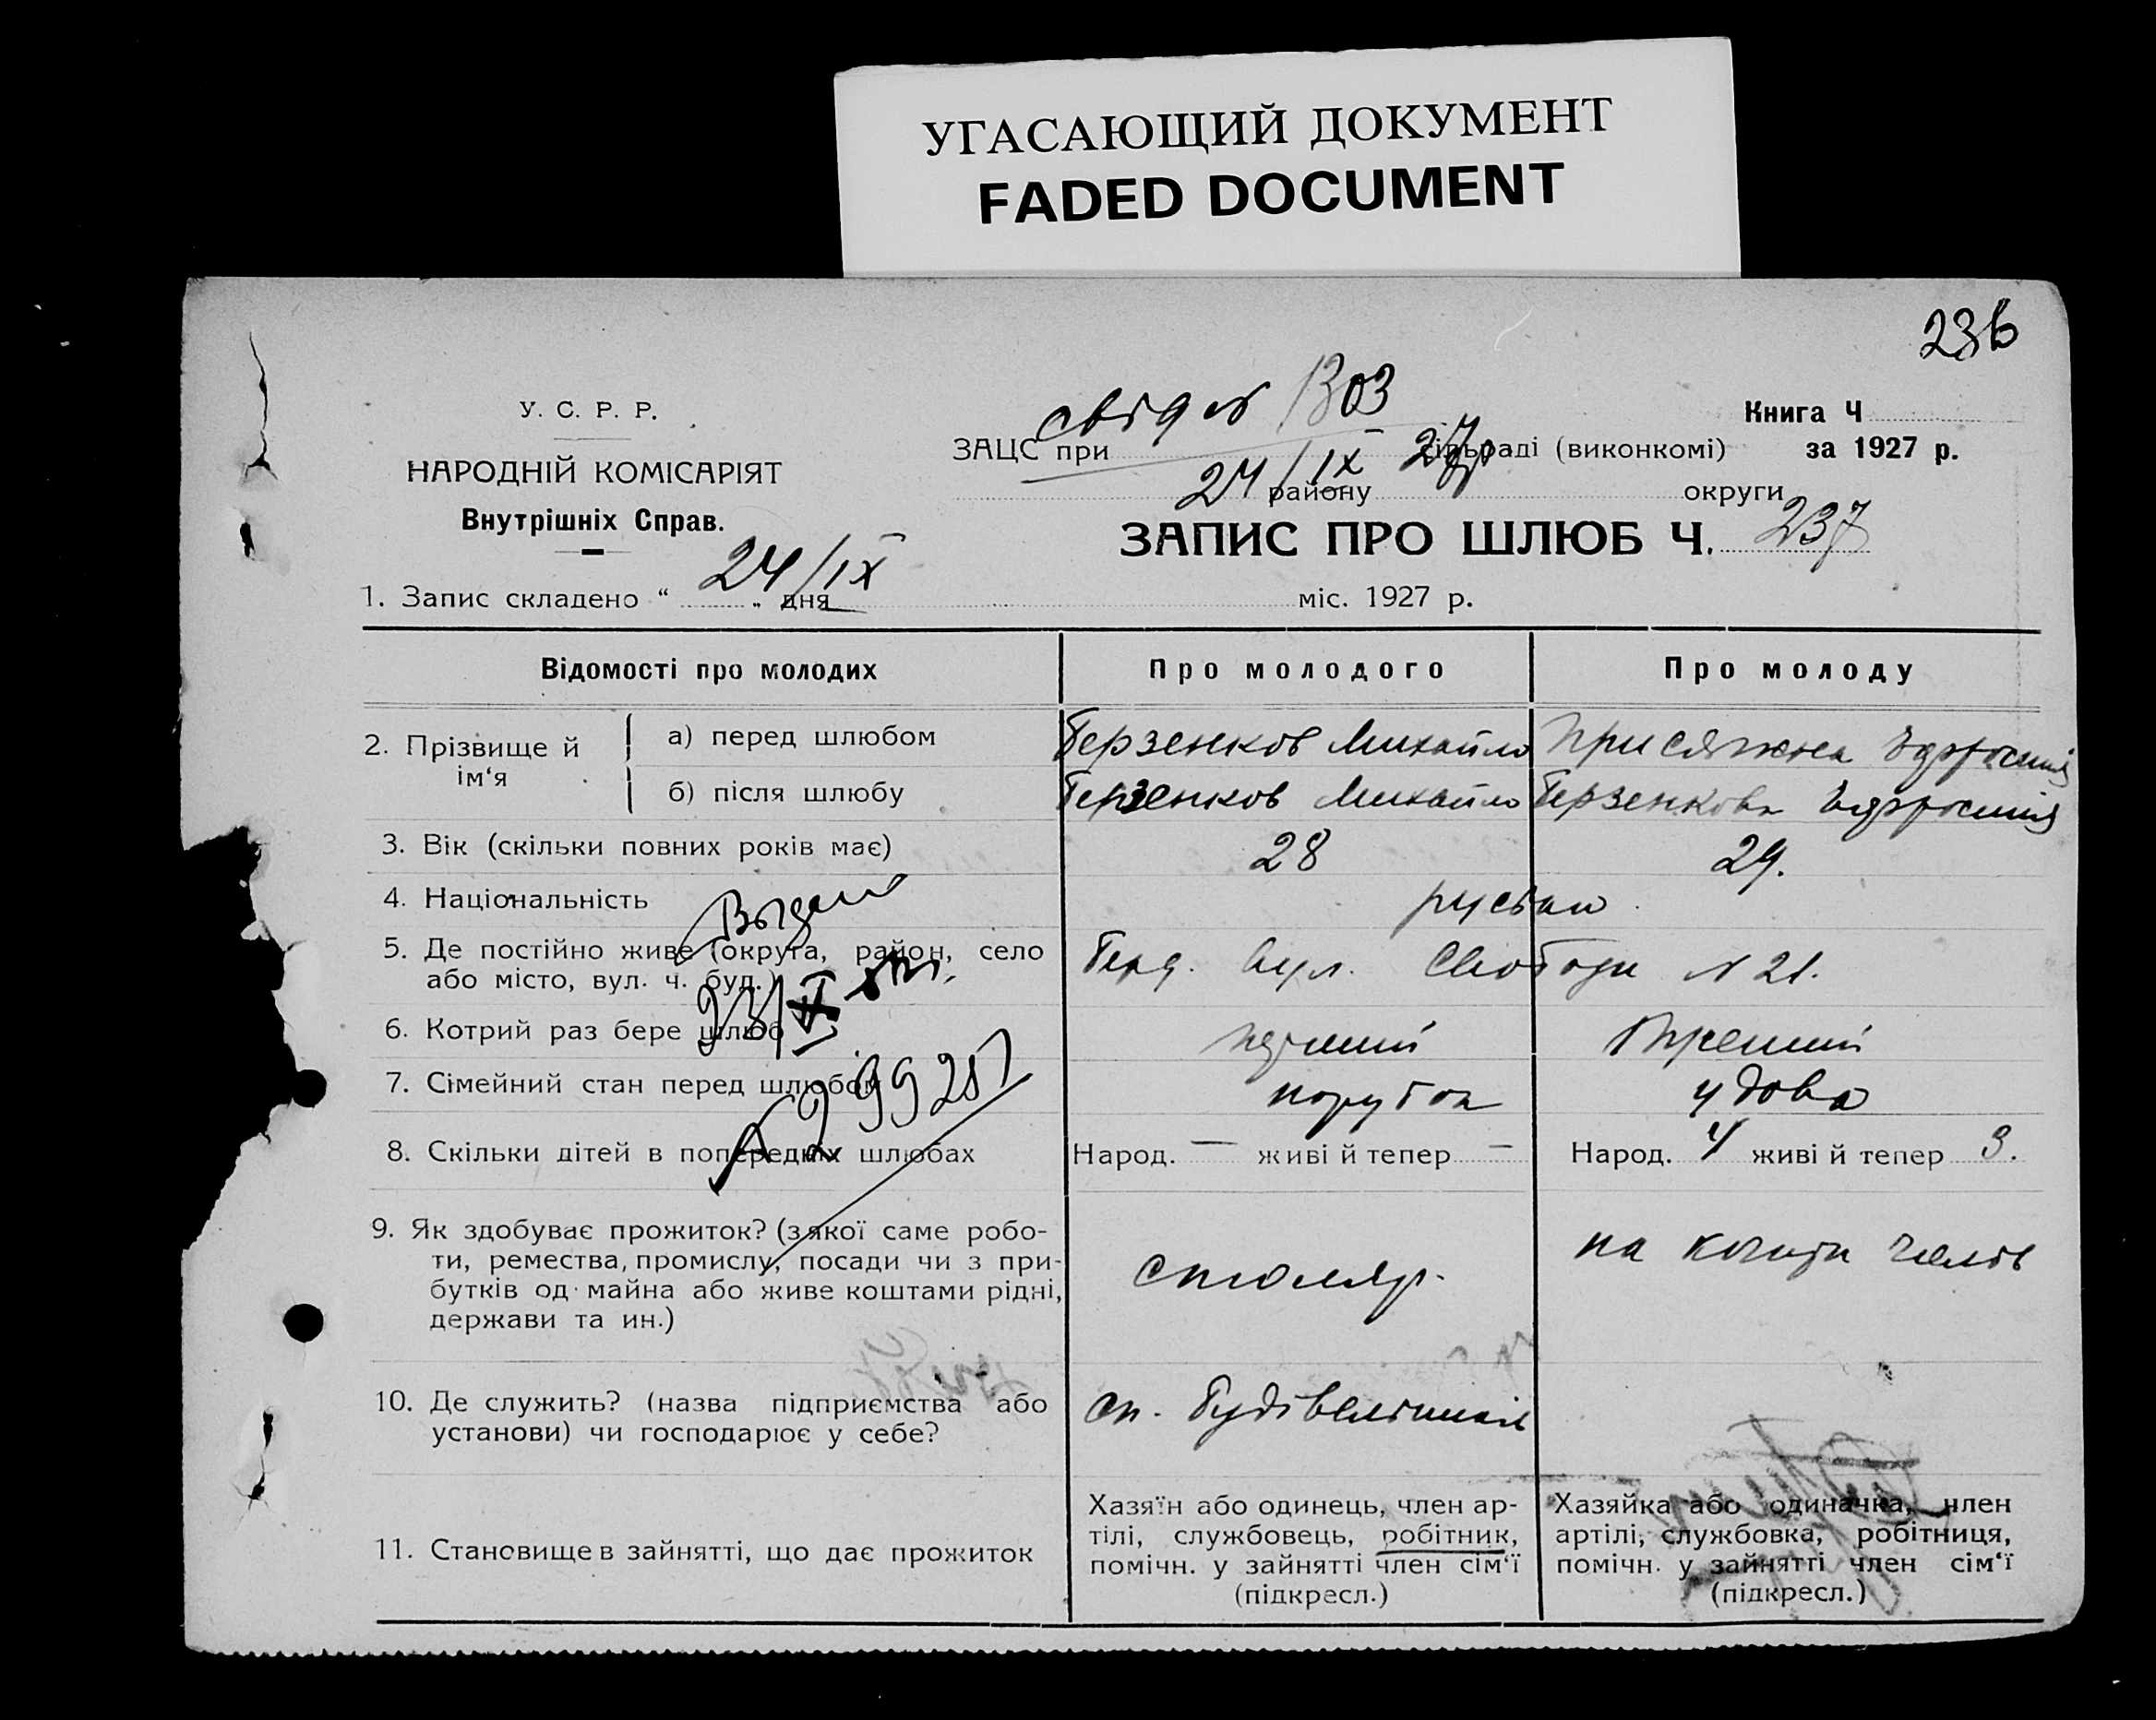 УГАСАЮЩИЙ ДОКУМЕНТ
FADED DOCUMENT
236
У. С. Р. Р.
НАРОДНІЙ КОМІСАРІЯТ
Внутрішніх Справ.
свід № 1303
ЗАЦС при сільраді (виконкомі)
24/IX 27р
району округи
Книга Ч
за 1927 р.
ЗАПИС ПРО ШЛЮБ Ч. 237
1. Запис складено “ 24/IX „ дня міс. 1927 р.
Відомості про молодих Про молодого Про молоду
2. Прізвище й ім‘я
а) перед шлюбом Берзенков Михайло Присяжна Єфросинія
б) після шлюбу Берзенков Михайло Берзенкова Єфросинія
3. Вік (скільки повних років має) 28 29.
4. Національність руськи
5. Де постійно живе (округа, район, село
або місто, вул. ч. буд.) Берд. вул. Свободи № 21.
6. Котрий раз бере шлюб перший Третий
7. Сімейний стан перед шлюбом парубок удова
8. Скільки дітей в попередніх шлюбах Народ. — живі й тепер — Народ. 4 живі й тепер 3.
9. Як здобуває прожиток? (з якої саме робо-
ти, ремества, промислу, посади чи з при-
бутків од майна або живе коштами рідні,
держави та ин.)
столяр.
на кошти
10. Де служить? (назва підприємства або
установи) чи господарює у себе?
сп. будівельників
11. Становище в зайнятті, що дає прожиток
Хазяїн або одинець, член ар-
тілі, службовець, робітник,
помічн. у зайнятті член сім‘ї
(підкресл.)
Хазяйка або одиначка, член
артілі, службовка, робітниця,
помічн. у зайнятті член сім‘ї
(підкресл.)